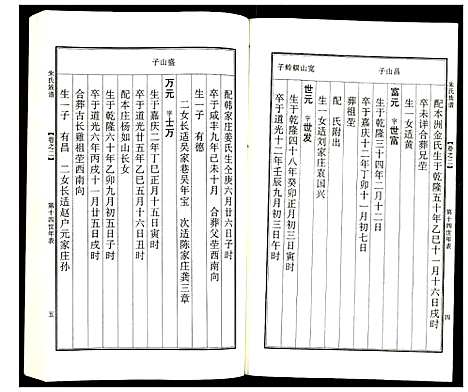 朱氏族谱
卷之二
第十四世年表
四
昌山子
配本洲金氏生于乾隆五十年乙巳十一月十六日戌时
卒未详合葬兄茔
生一女适黄
富元 字世富
生于乾隆三十四年二月十二日
卒于嘉庆十二年丁卯十一月初七日
葬祖茔
配氏附出
生一女适刘家庄袁国兴
宽山螟蛉子
世元 字世发
生于乾隆四十八年癸卯正月初三日寅时
卒于道光十二年壬辰九月初三日午时
盛山子
配韩家庄姜氏生仝庚六月廿八日戌时
卒于咸丰九年己未十月 合葬父茔西南向
生一子 有德
二女长适吴家巷吴年宝 次适陈家庄龚三章
万元 字士万
生于嘉庆二年丁巳正月十五日寅时
卒于道光廿五年乙巳五月十六日丑时
配本庄杨如山长女
生于乾隆六十年乙卯九月初五日子时
卒于道光六年丙戌十一月廿五日戌时
合葬古长雞祖茔西南向
生一子 有昌 二女长适赵户元家庄孙
朱氏族谱
卷之二
第十四世年表
五